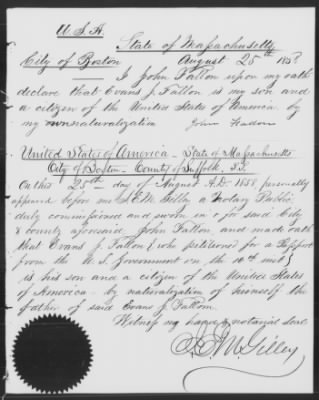 U.S.A.
State of Massachusetts
City of Boston August 25th 1858
I John Fallon upon my oath
declare that Evans J. Fallon is my son and
a citizen of the United States of America by
my own naturalization John Fallon
United States of America - State of Massachusetts
City of Boston - County of Suffolk, SS.
On this 25th day of August A.D. 1858 personally
appeared before me S.E.M. Gilley a Notary Public
duly commissioned and sworn in & for said City
& county aforesaid John Fallon, and made oath
that Evans J. Fallon (who petitioned for a Passport
from the U.S. Government on the 10th inst)
is his son and a citizen of the United States
of America - by nationalization of himself the
father of said Evans J. Fallon.
Witness my hand & notarial seal
Gilley